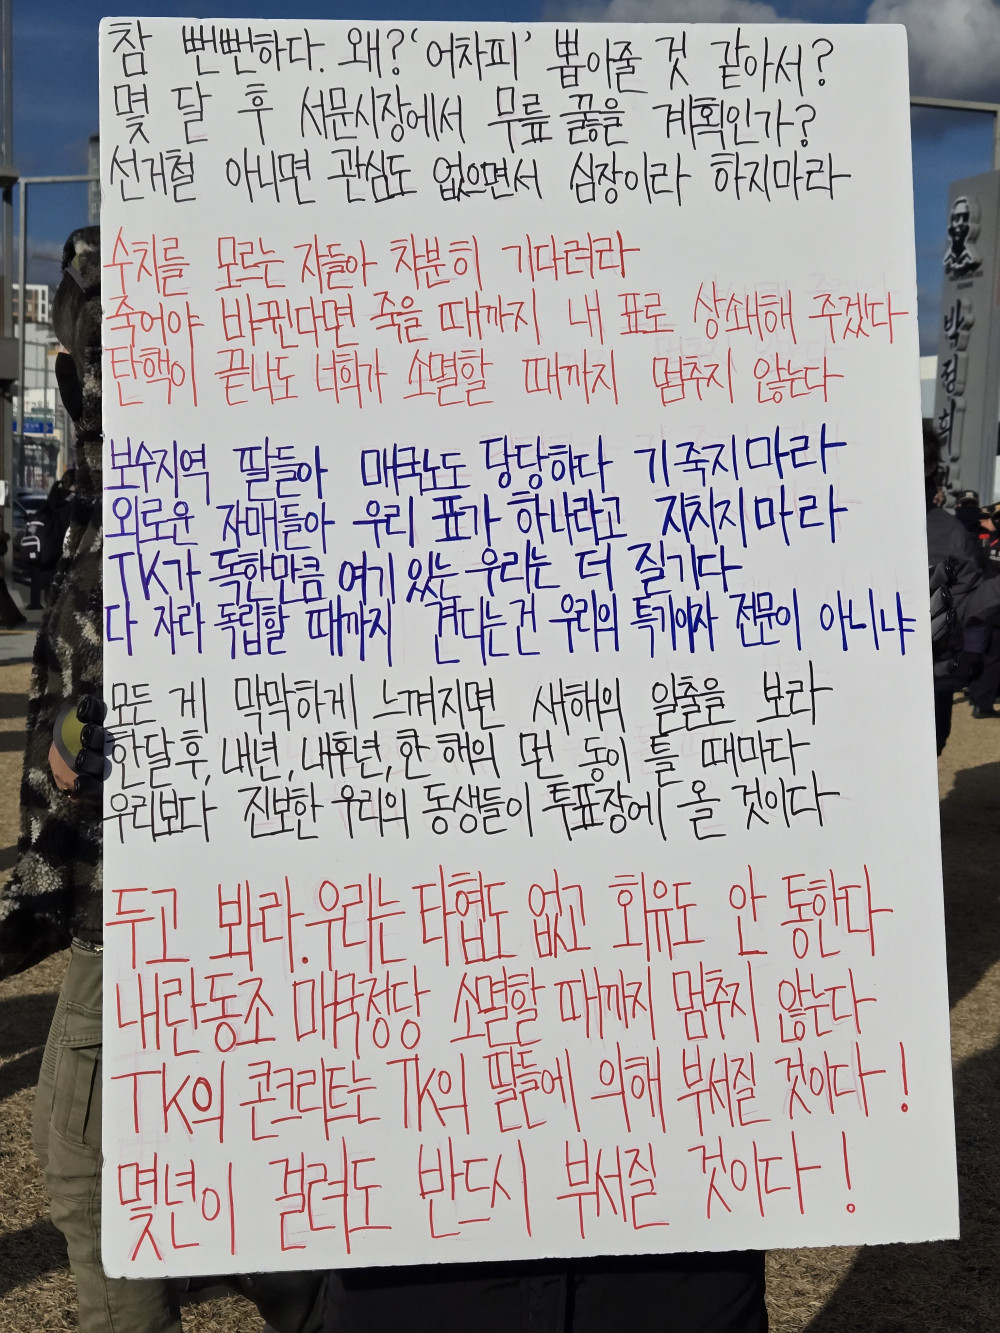 참 뻔뻔하다. 왜? '어차피' 뽑아줄 것 같아서?
몇 달 후 서문시장에서 무릎 꿇을 계획인가?
선거철 아니면 관심도 없으면서 심장이라 하지마라
수치를 모르는 자들아 차분히 기다려라
죽어야 바뀐다면 죽을 때까지 내 표로 상쇄해 주겠다
탄핵이 끝나도 너희가 소멸할 때까지 멈추지 않는다
보수지역 딸들아 매국노도 당당하다 기죽지마라
외로운 자매들아 우리 표가 하나라고 지치지마라
TK가 독한만큼 여기 있는 우리는 더 질기다
다 자라 독립할 때까지 견디는건 우리의 특기이자 전문이 아니냐
모든 게 막막하게 느껴지면 새해의 일출을 보라
한달후, 내년, 내후년, 한 해의 먼 동이 틀 때마다
우리보다 진보한 우리의 동생들이 투표장에 올 것이다
두고 봐라. 우리는 타협도 없고 회유도 안 통한다
내란동조 매국정당 소멸할 때까지 멈추지 않는다
TK의 콘크리트는 TK의 딸들에 의해 부서질 것이다!
몇년이 걸려도 반드시 부서질 것이다!
박정희